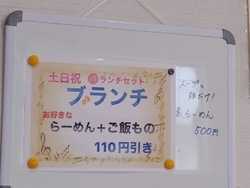 土日祝 ランチセット
ブランチ
お好きな
らーめん+ご飯もの
110円引き
スープと
麺だけ!
素らーめん
500円